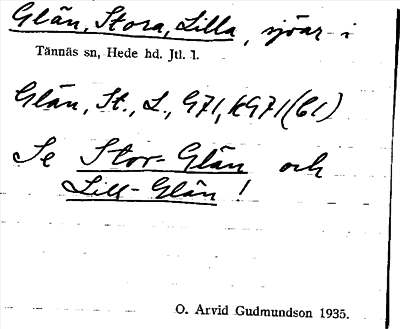 Glän, Stora, Lilla, sjöar i
Tännäs sn, Hede hd. Jtl. l.
Glän, St., L., G71, KG71(61)
Se Stor-Glän och
Lill-Glän!
O. Arvid Gudmundson 1935.